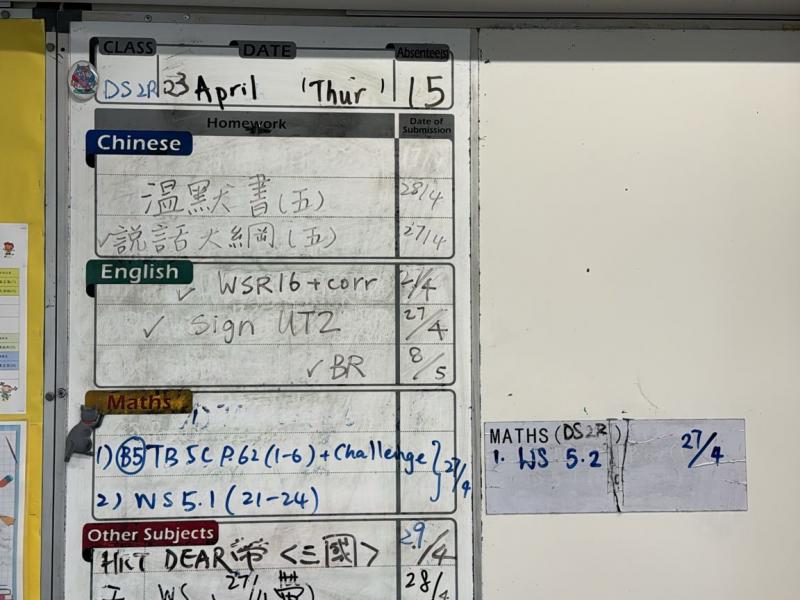 CLASS DATE Absentee(s)
DS2R 23 April (Thur) 15
Homework Date of Submission
Chinese
溫默書(五) 28/4
✓說話大綱(五) 27/4
English
✓ WSR16+corr /4
✓ Sign UT2 27/4
✓BR 8/5
Maths
1) B5 TB 5C P.62 (1-6) + Challenge } 27/4
2) WS 5.1 (21-24)
MATHS (DS2R)
1. WS 5.2 27/4
Other Subjects
HKT DEAR 帶 <三國> 29/4
WS 27/ 28/4